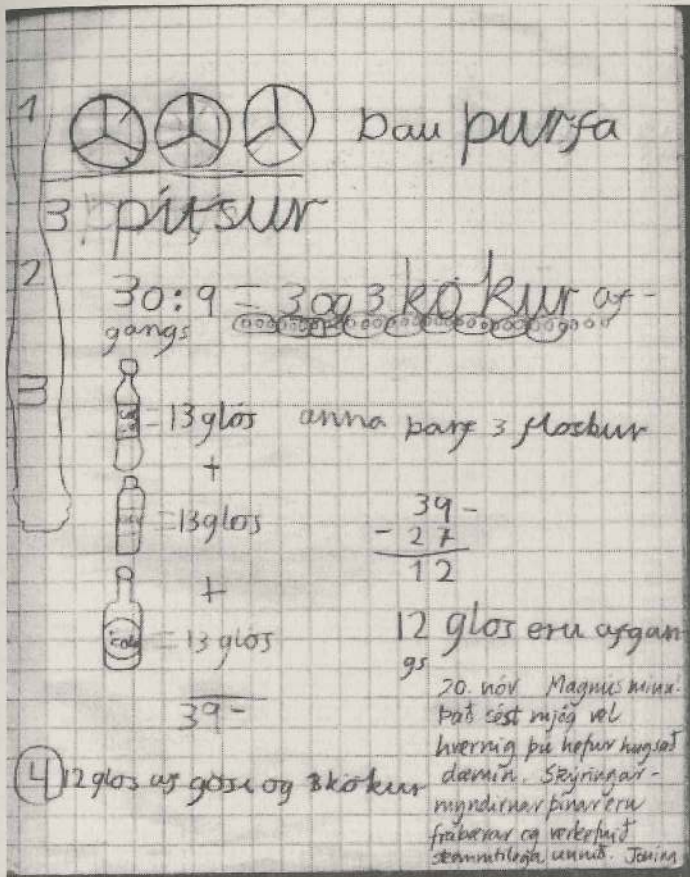 1 Þau þurfa
3 pítsur
2
30:9 = 3 og 3 kökur af-
gangs
3
= 13 glös anna þarf 3 floskur
+
= 13 glös
39-
- 27
12
+
cola = 13 glös
12 glös eru afgan
gs
39-
4 12 glös af gosi og 3 kökur
20. nóv Magnús minn!
Það sést mjög vel
hvernig þú hefur hugsað
dæmin. Skýringar-
myndirnar þínar eru
frábærar og verkefnið
skemmtilega unnið. Jónína